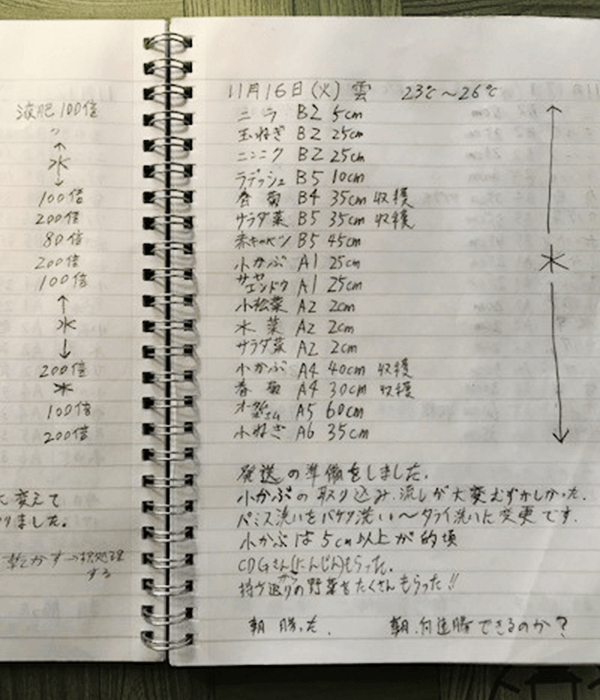 液肥 100倍
〃
↑
水
↓
100倍
200倍
80倍
200倍
100倍
↑
水
↓
200倍
水
100倍
200倍
変えて
りました。
乾かす→根処理
する
11月16日(火) 雲 23℃〜26℃
ニラ B2 5cm
玉ねぎ B2 25cm
ニンニク B2 25cm
ラデッシュ B5 10cm
春菊 B4 35cm 収穫
サラダ菜 B5 35cm 収穫
赤キャベツ B5 45cm
小かぶ A1 25cm
サヤエンドウ A1 25cm
小松菜 A2 2cm
水菜 A2 2cm
サラダ菜 A2 2cm
小かぶ A4 40cm 収穫
春菊 A4 30cm 収穫
A5 60cm
小ねぎ A6 35cm
↑
水
↓
発送の準備をしました。
小かぶの取り込み、流しが大変むずかしかった。
パミス洗いをバケツ洗い〜タライ洗いに変更です。
小かぶは5cm以上が的頃
CDGさん(にんじん)もらった。
持ち返りの野菜をたくさんもらった!!
朝 勝った。 朝、何連勝できるのか?